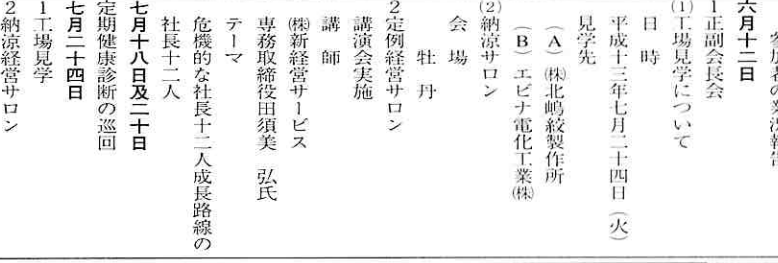 参加者の業況報告
六月十二日
1正副会長会
(1)工場見学について
日　時
平成十三年七月二十四日（火）
見学先
（A）㈱北嶋絞製作所
（B）エビナ電化工業㈱
(2)納涼サロン
会　場
牡　丹
2定例経営サロン
講演会実施
講　師
㈱新経営サービス
専務取締役田須美　弘氏
テーマ
危機的な社長十二人成長路線の
社長十二人
七月十八日及二十日
定期健康診断の巡回
七月二十四日
1工場見学
2納涼経営サロン